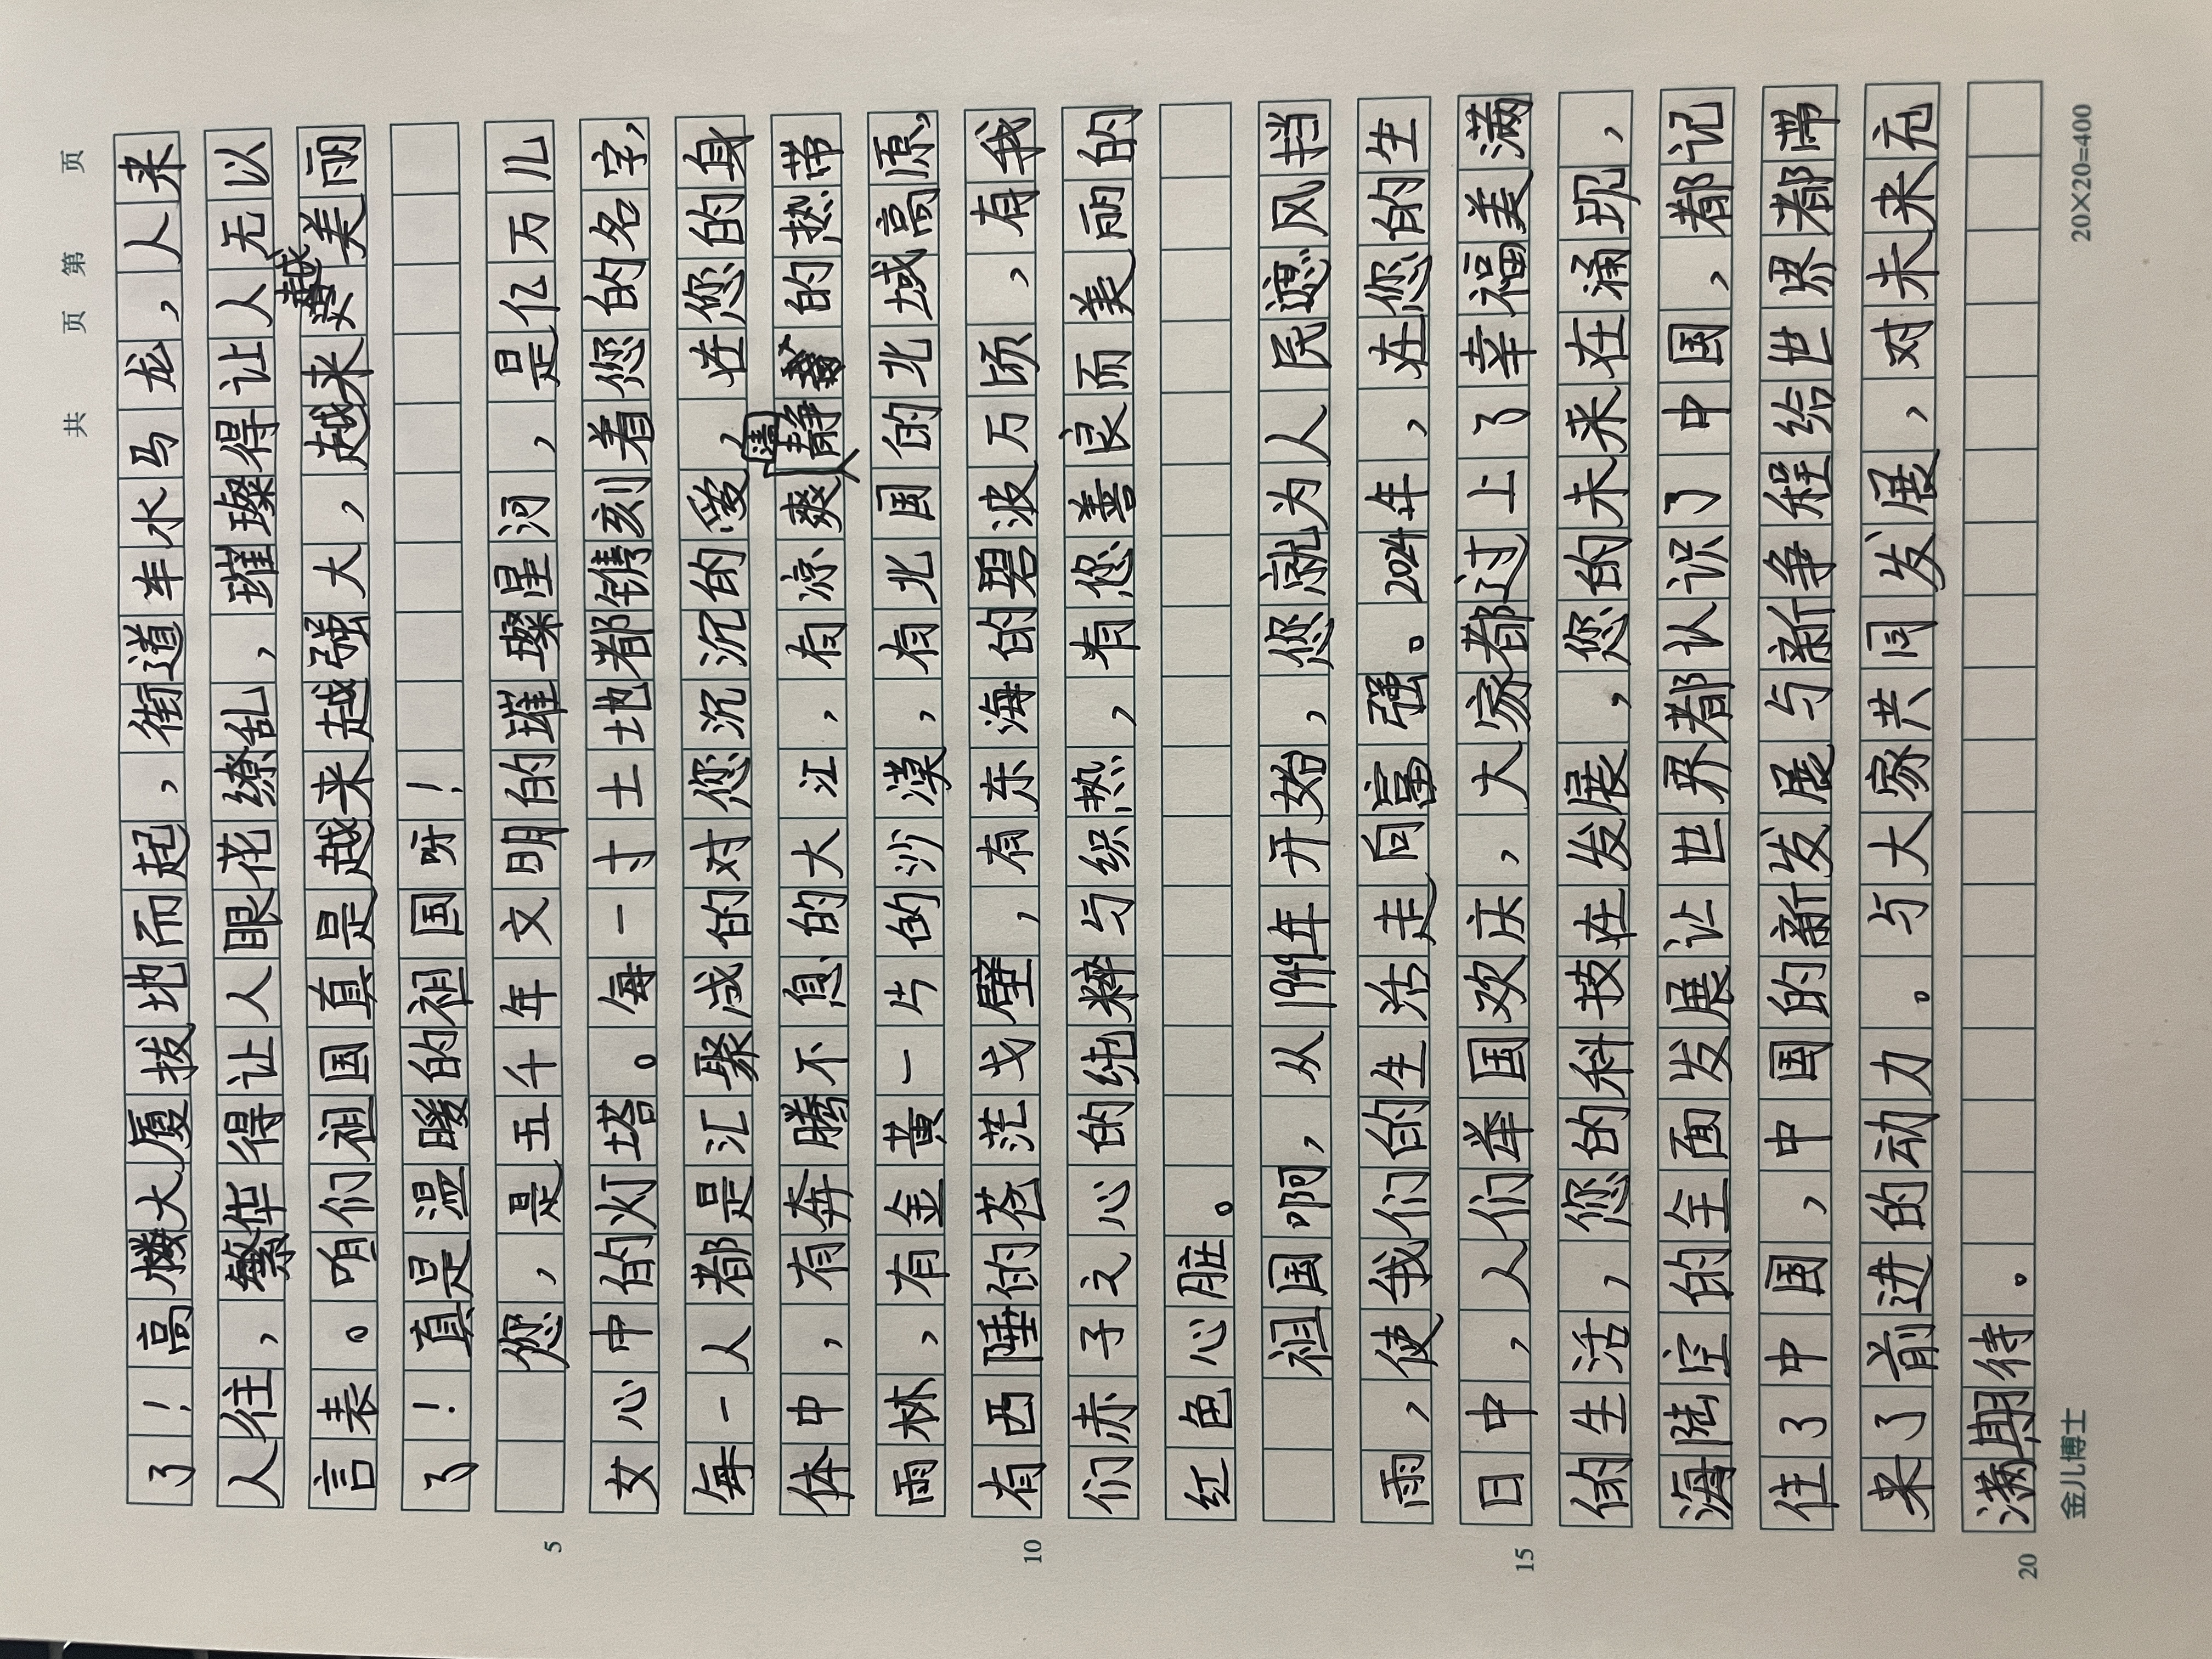 共 页 第 页
了！高楼大厦拔地而起，街道车水马龙，人来
人往，繁华得让人眼花缭乱，璀璨得让人无以
言表。咱们祖国真是越来越强大，越来越美丽
了！真是温暖的祖国呀！
您，是五千年文明的璀璨星河，是亿万儿
5
女心中的灯塔。每一寸土地都镌刻着您的名字，
每一人都是汇聚成的对您沉沉的爱，在您的身
体中，有奔腾不息的大江，有凉爽静的热带
雨林，有金黄一片的沙漠，有北国的北域高原，
有西陲的苍茫戈壁，有东海的碧波万顷，有我
10
们赤子之心的纯粹与织热，有您善良而美丽的
红色心脏。
祖国啊，从1949年开始，您就为人民遮风挡
雨，使我们的生活走向富强。2024年，在您的生
日中，人们举国欢庆，大家都过上了幸福美满
15
的生活，您的科技在发展，您的未来在涌现，
海陆空的全面发展让世界都认识了中国，都记
住了中国，中国的新发展与新争程给世界都带
来了前进的动力。与大家共同发展，对未来充
满期待。
20
金儿博士
20×20=400